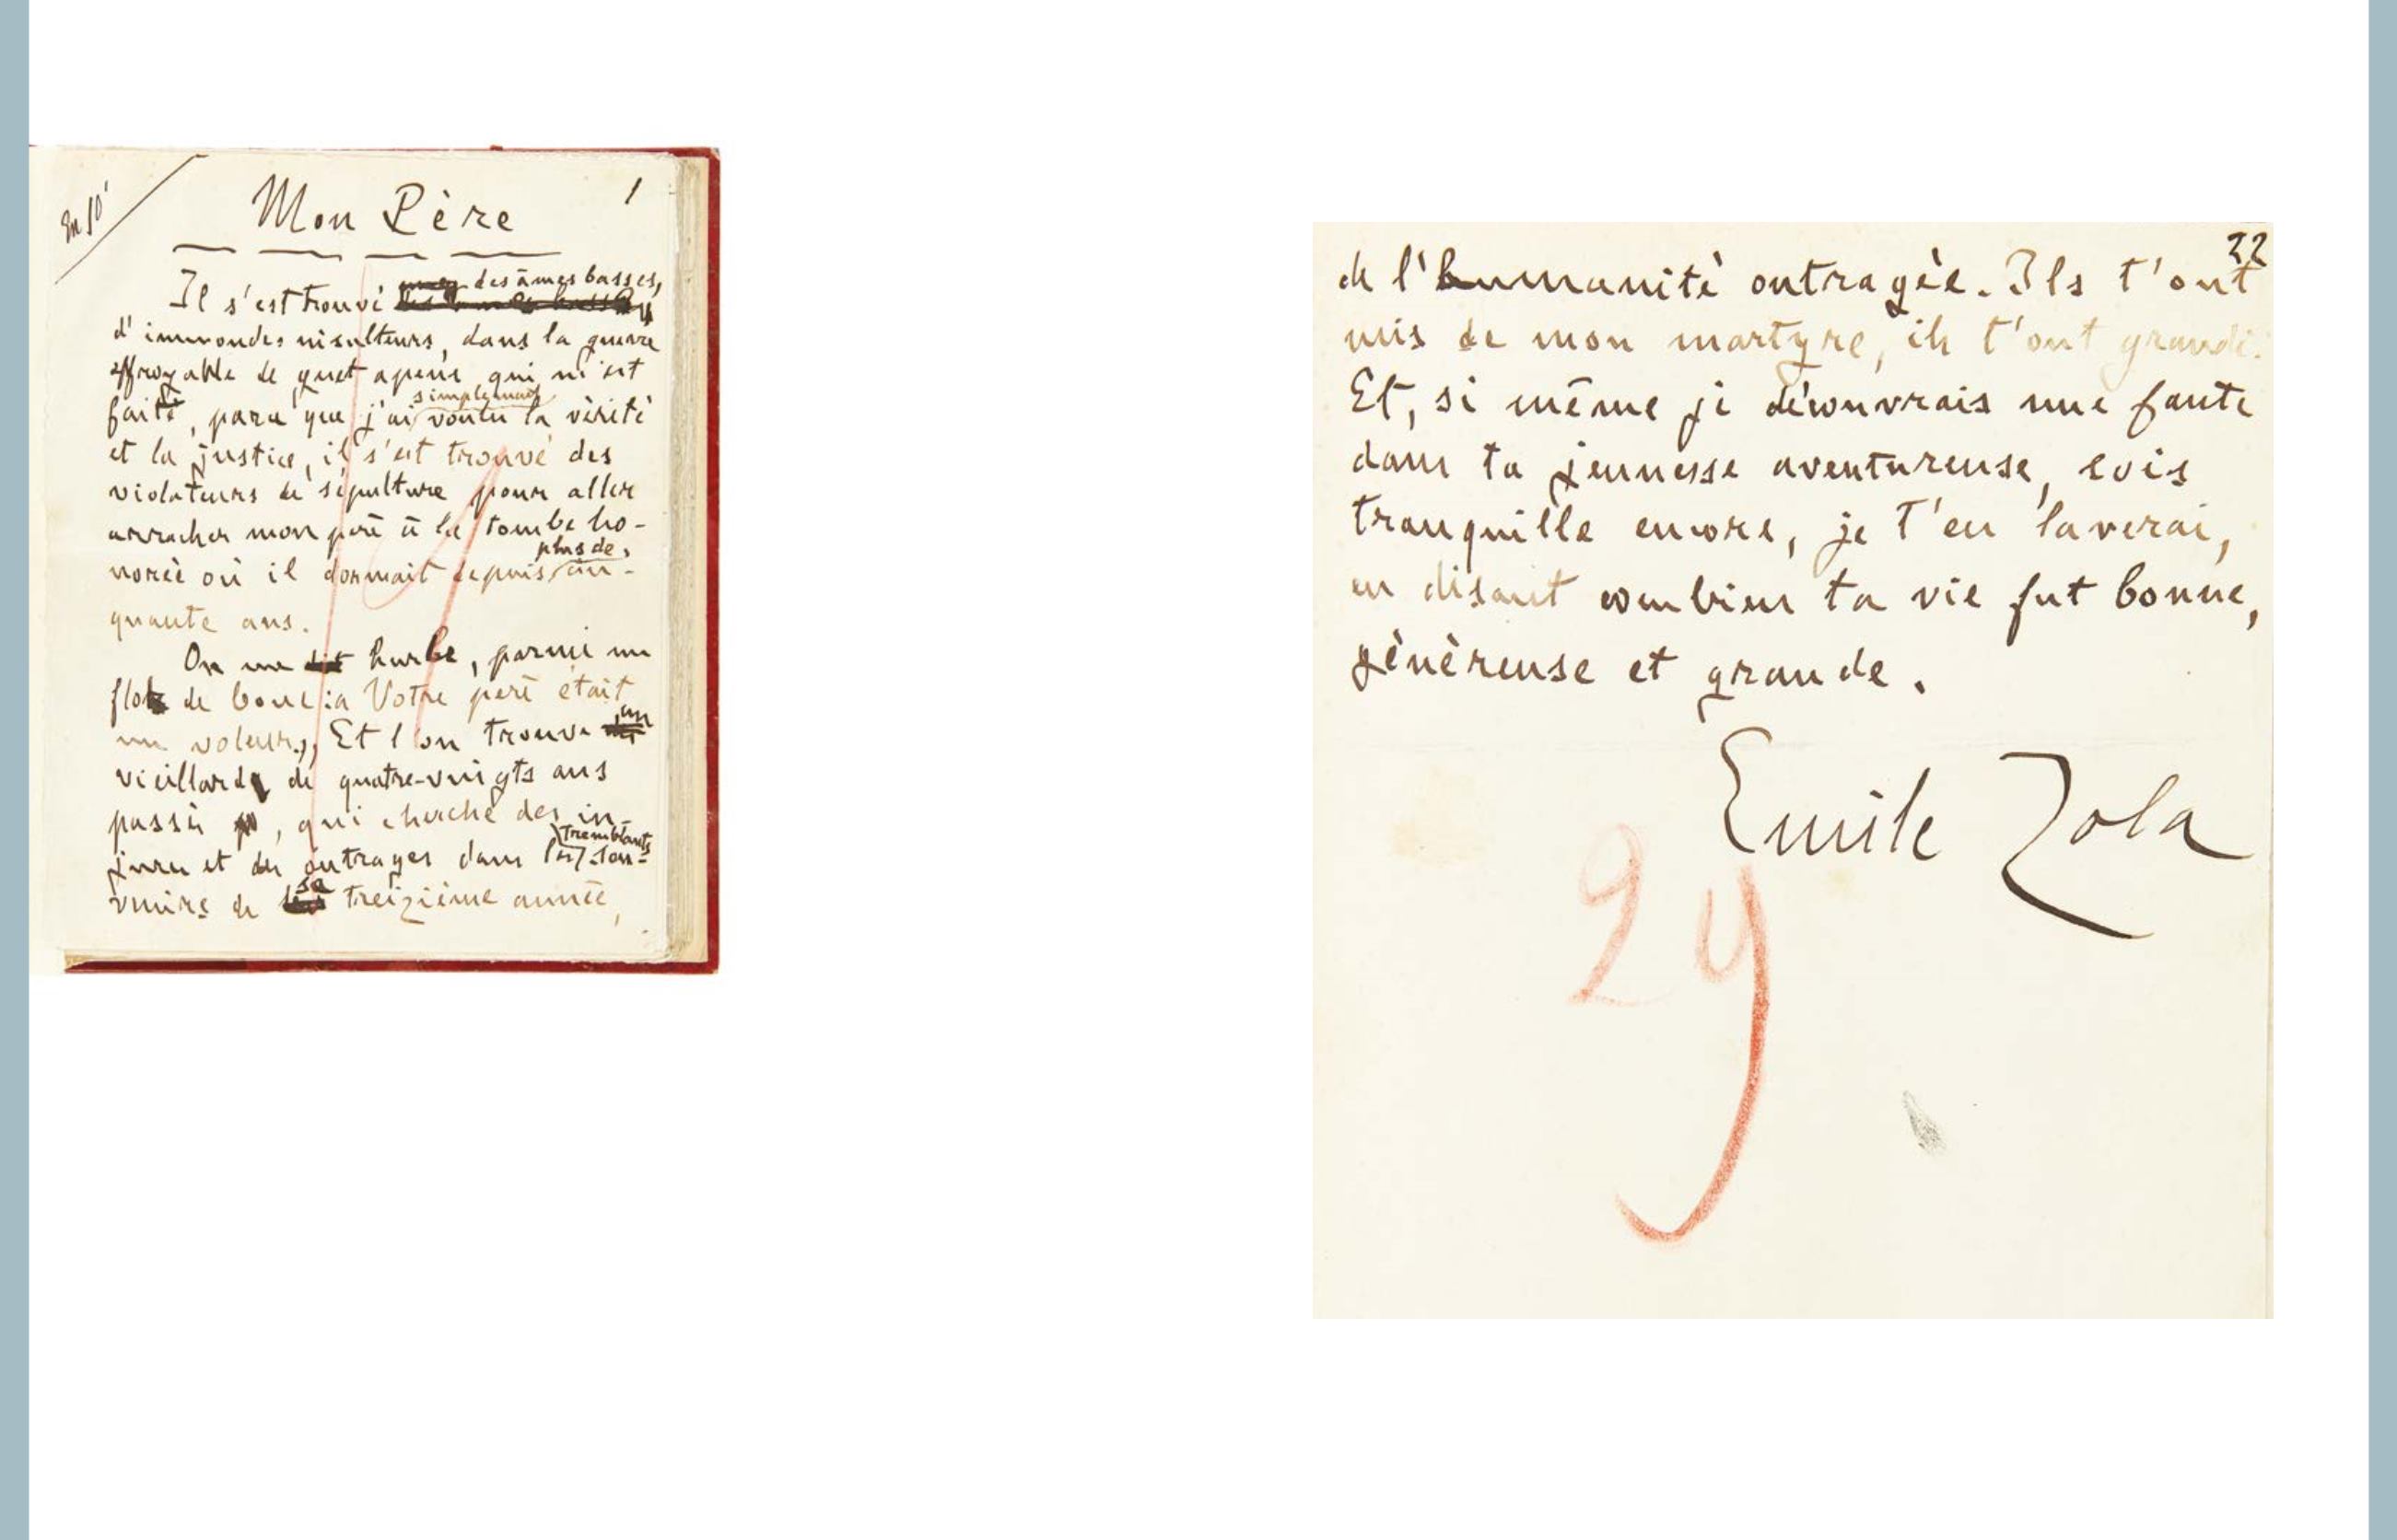 1
Mon Père
Il s'est trouvé des âmes basses,
d'immondes insulteurs, dans la guerre
effroyable de guet apens qui m'est
faite, parce que j'ai simplement voulu la vérité
et la justice, il s'est trouvé des
violateurs de sépulture pour aller
arracher mon père à la tombe ho-
norée où il dormait depuis plus de cin-
quante ans.
On me hurle, parmi un
flot de boue : « Votre père était
un voleur. » Et l'on trouve un
vieillard de quatre-vingts ans
passés, qui cherche des in-
jures et des outrages dans les tremblants sou-
venirs de sa treizième année,
22
de l'humanité outragée. Ils t'ont
mis de mon martyre, ils t'ont grandi.
Et, si même je découvrais une faute
dans ta jeunesse aventureuse, sois
tranquille encore, je t'en laverai,
en disant combien ta vie fut bonne,
généreuse et grande.
Emile Zola
29